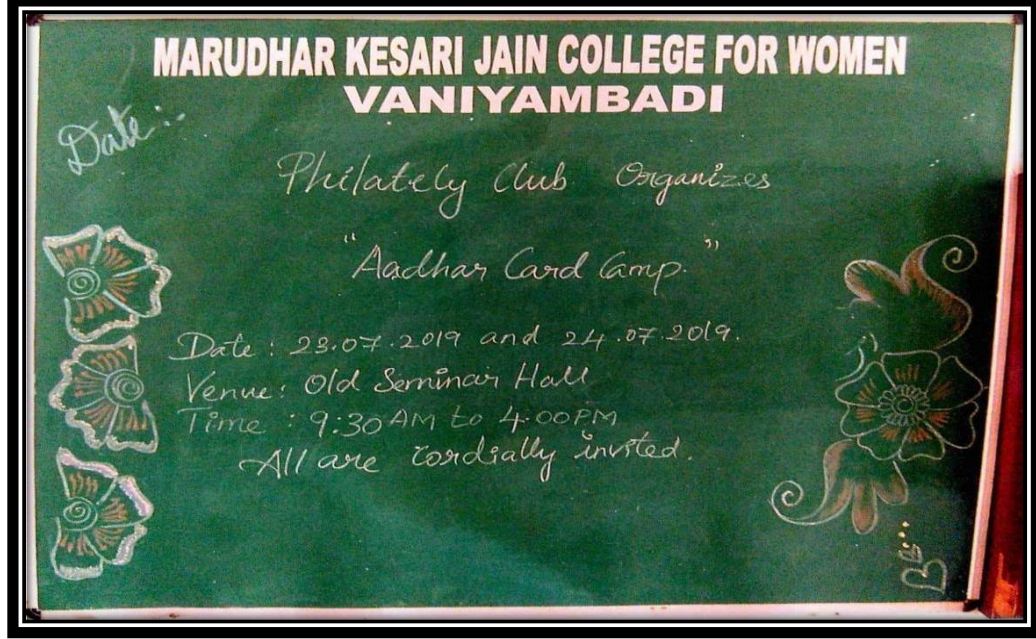 MARUDHAR KESARI JAIN COLLEGE FOR WOMEN
VANIYAMBADI
Date :
Philately Club Organizes
"Aadhar Card Camp."
Date : 23.07.2019 and 24.07.2019.
Venue : Old Seminar Hall
Time : 9:30 AM to 4.00PM
All are cordially invited.